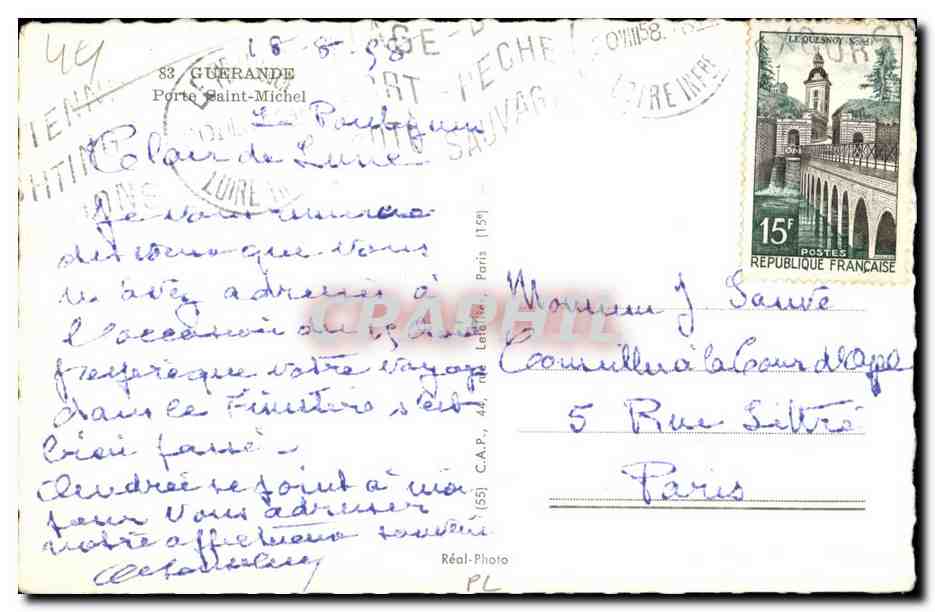 44
18-8-58
83 GUERANDE
Porte Saint-Michel
Le Pouliguen
Clair de Lune
Je vous remercie
des vœux que vous
m'avez adressés à
l'occasion du 15 Août
J'espère que votre voyage
dans le Finistère s'est
bien passé.
Andrée se joint à moi
pour vous adresser
notre affectueux souvenir
LE QUESNOY Nord
15F
POSTES
REPUBLIQUE FRANÇAISE
LOIRE INFRE
PECHE
SAUVAG
(55) C.A.P., 44, r Letellier, Paris (15e)
CPAPHIL
Monsieur J Sauvé
Conseiller à la Cour d'Appel
5 Rue Littré
Paris
Réal-Photo
PL